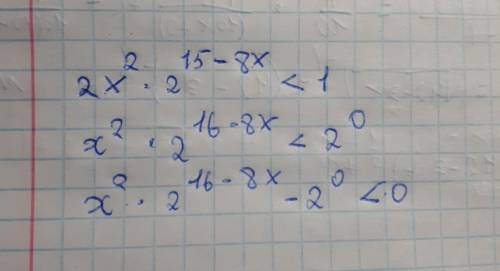 2x² · 2^15-8x < 1
x² · 2^16-8x < 2^0
x² · 2^16-8x - 2^0 < 0